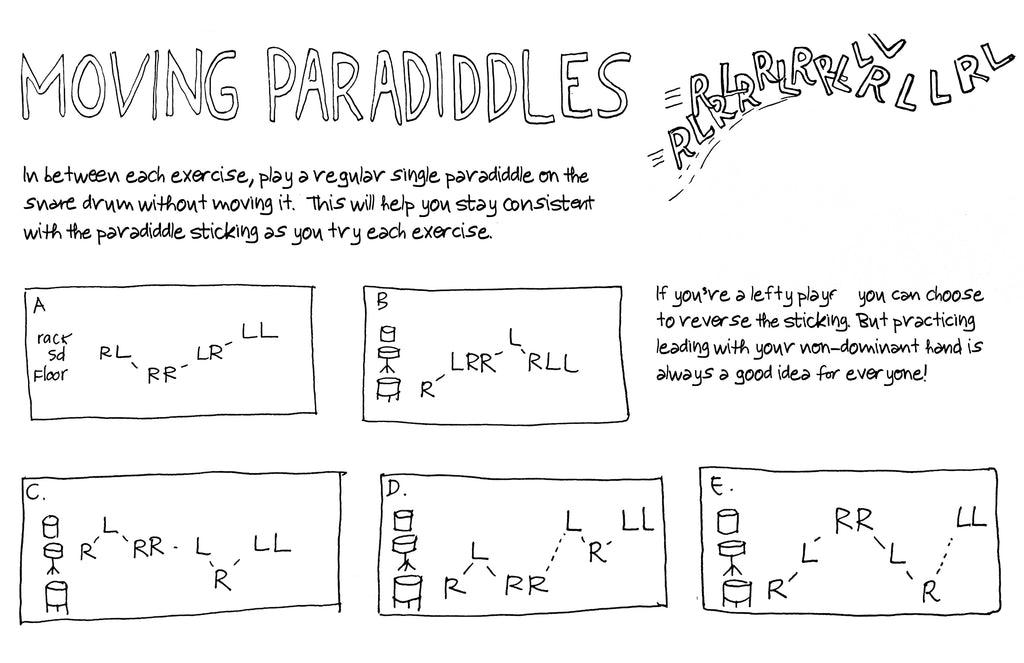 MOVING PARADIDDLES
In between each exercise, play a regular single paradiddle on the
snare drum without moving it. This will help you stay consistent
with the paradiddle sticking as you try each exercise.
A
rack
sd
Floor
RL RR LR LL
B
R LRR L RLL
If you're a lefty playr you can choose
to reverse the sticking. But practicing
leading with your non-dominant hand is
always a good idea for everyone!
C.
R L RR L R LL
D.
R L RR L R LL
E.
R L RR L R LL